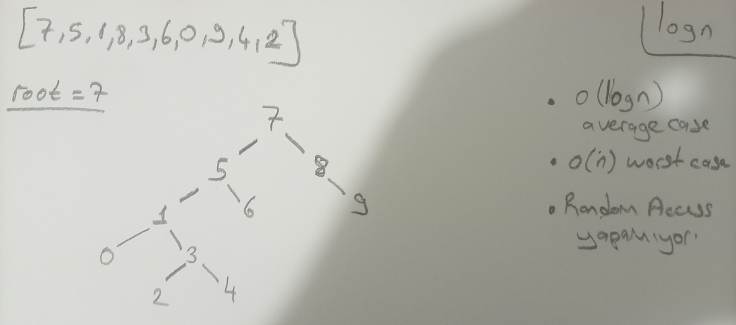 [7,5,1,8,3,6,0,9,4,2]
logn
root = 7
7
5 8
1 6 9
0 3
2 4
• O(logn)
average case
• O(n) worst case
• Random Access
yapamıyor.